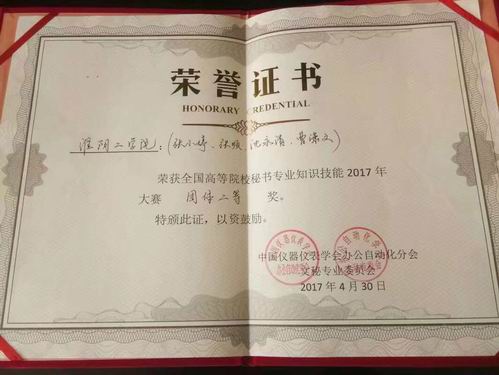 荣誉证书
HONORARY CREDENTIAL
淮阴工学院：(张小婷、张顺、沈永清、曹潆文)
荣获全国高等院校秘书专业知识技能 2017 年
大赛 团体二等 奖。
特颁此证，以资鼓励。
中国仪器仪表学会办公自动化分会
文秘专业委员会
2017 年 4 月 30 日